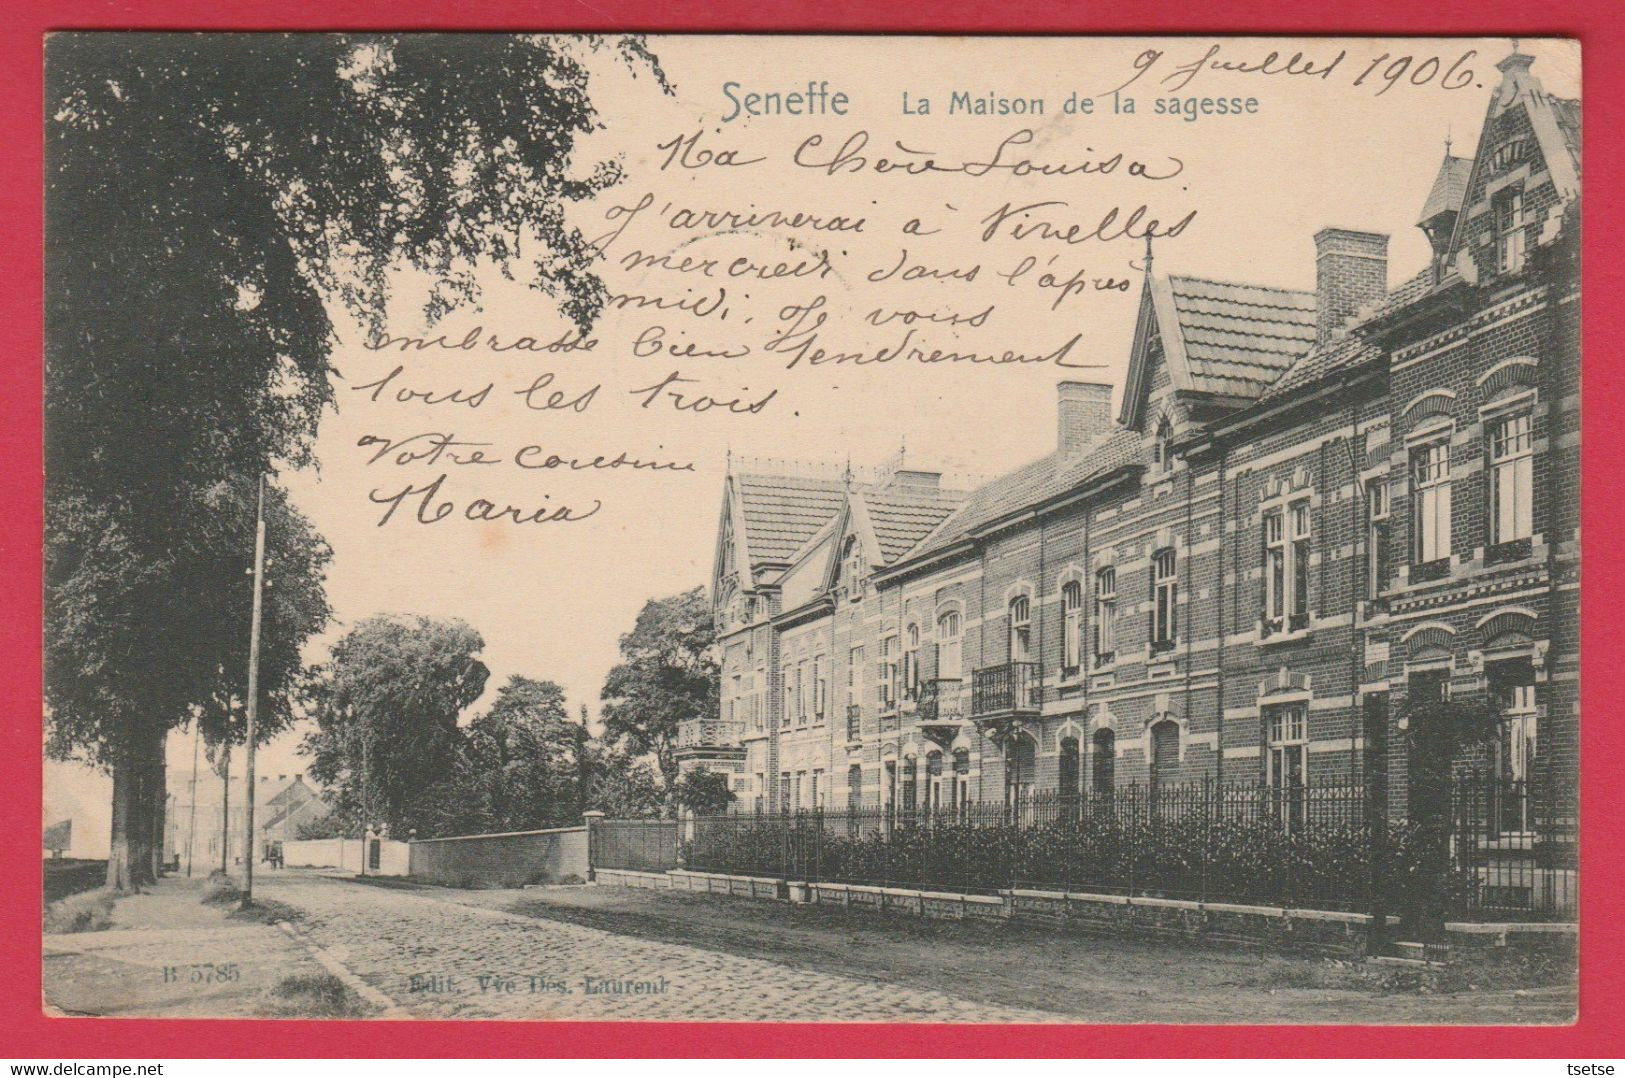 9 Juillet 1906.
Seneffe La Maison de la sagesse
Ma Chère Louisa
J'arriverai à Nivelles
mercredi dans l'après
midi, Je vous
embrasse bien tendrement
tous les trois.
Votre cousine
Maria
B 5785
Edit. Vve Des. Laurent
tsetse